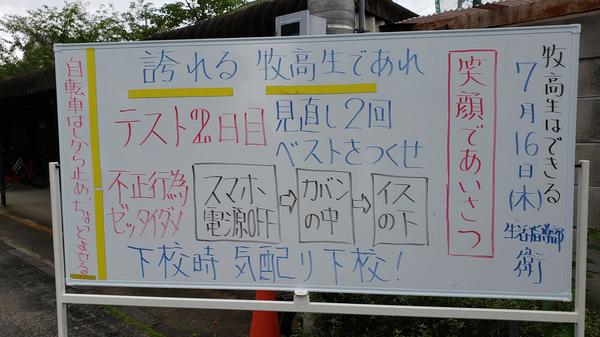 牧高生はできる
7月16日(木)
生活指導部
衛
笑顔であいさつ
誇れる 牧高生であれ
テスト2日目
見直し2回
ベストをつくせ
不正行為
ゼッタイダメ
スマホ
電源OFF
⇨
カバン
の中
⇨
イス
の下
下校時 気配り下校!
自転車はしから止め、ちょっとまてる